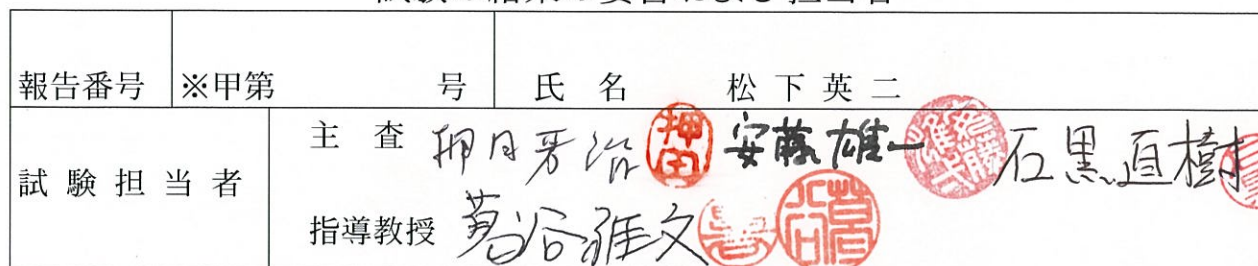 報告番号 ※甲第 号 氏 名 松 下 英 二
試 験 担 当 者
主 査 押田芳治 押田 安藤雄一 石黒直樹
指導教授 葛谷雅文